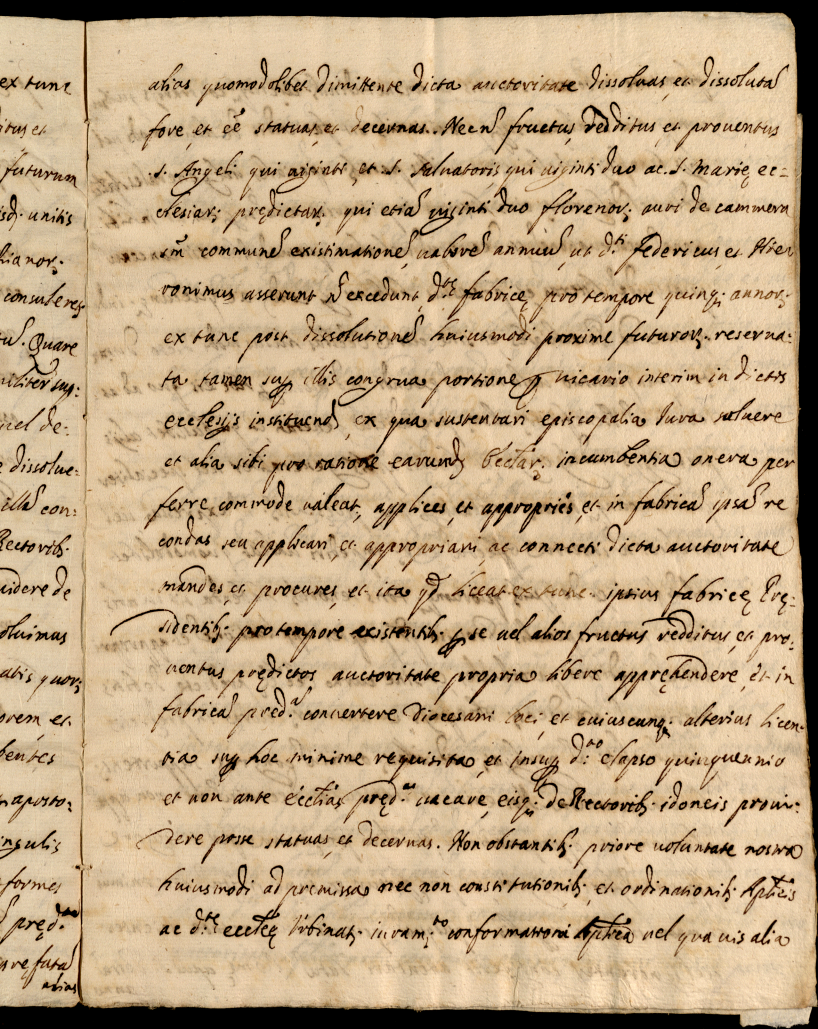 ex tunc
itus et
futurum
isdẽ. unitis
hianor.
consuleres
Quare
militer sup:
uel de:
e dissolue:
illã con:
Rectorib.
uidere de
oluimus
atis quor;
orem et
bentes
aposto:
ingulis
formes
pręd.ᵃᵐ
refutã
alias
alias quomodolibet dimittente dicta auctoritate dissoluas, et dissolutã
fore, et eẽ statuas, et decernas. Necñ fructus, redditus, et prouentus
.s. Angeli qui uiginti, et .s. saluatoris, qui uiginti duo ac .s. Marię ec=
clesiar; prędictar; qui etiã uiginti duo florenor; auri de cammera
sm̃ communẽ existimationẽ, ualorẽ annuũ, ut d.ᵗⁱ federicus, et Hie
ronimus asserunt nõ excedunt, d.ᵗᵉ fabricę pro tempore quinq; annor;
ex tunc post dissolutionẽ huiusmodi proxime futuror; reserua:
ta tamen sup illis congrua portione p uicario interim in dictis
ecclesijs instituend, ex qua sustentari episcopalia iura soluere
et alia sibi pro ratione earund ecclar; incumbentia onera per
ferre commode ualeat, applices, et appropries, et in fabricã ipsã re
condas seu applicari, et appropriari, ac connecti dicta auctoritate
mandes, et procures, et ita qd liceat ex tunc ipsius fabricę Prę:
sidentib; pro tempore existentib; p se uel alios fructus redditus, et pro:
uentus prędictos auctoritate propria libere apprehendere, et in
fabricã pred.ᵃᵐ conuertere Diocesani loci, et cuiuscunq; alterius licen:
tia sup hoc minime requisita, et insup d.ᵗᵒ elapso quinquennio
et non ante ecclias pręd.ᵃˢ uacare, eisq; de Rectorib; idoneis proui:
dere posse statuas, et decernas. Non obstantib; priore uoluntate nostra
huiusmodi ad premissa nec non constitutionib; et ordinationib; Aplicis
ac d.ᵗᵉ ecclię Vrbinat; iuram.ᵗᵒ confirmatione Aplica uel quauis alia